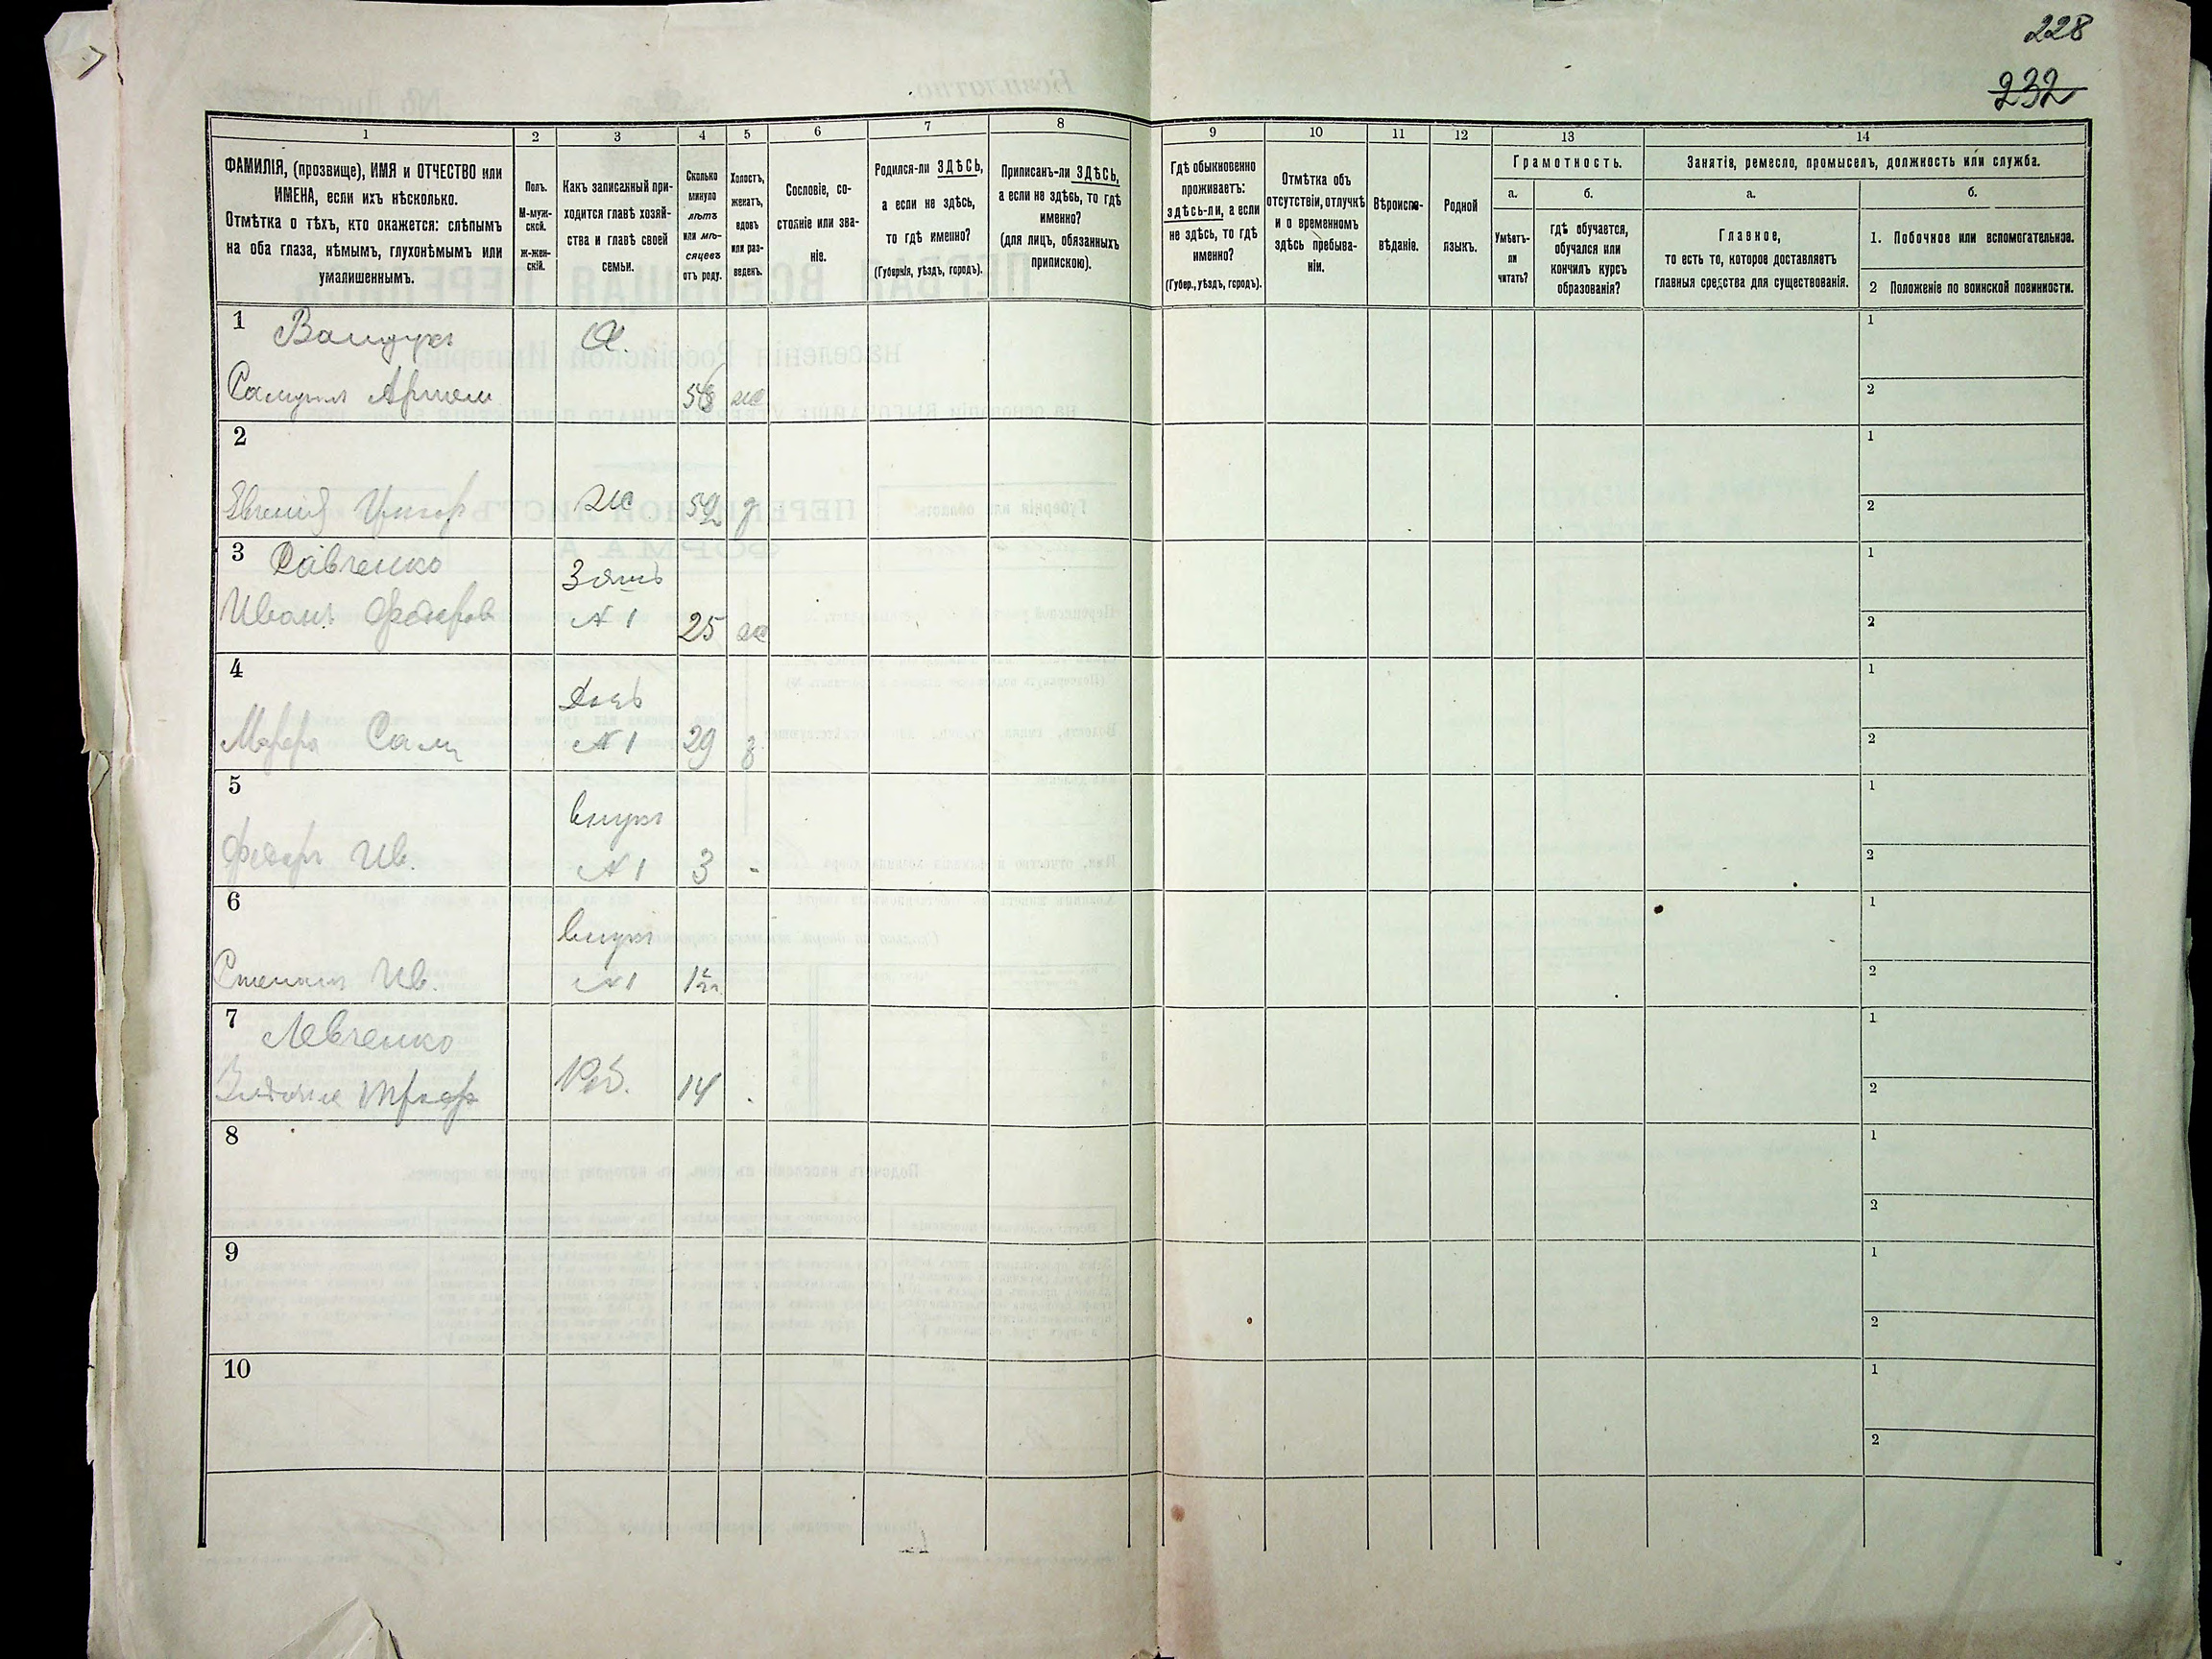 228
232
1 2 3 4 5 6 7 8 9 10 11 12 13 14
ФАМИЛІЯ, (прозвище), ИМЯ и ОТЧЕСТВО или
ИМЕНА, если ихъ нѣсколько.
Отмѣтка о тѣхъ, кто окажется: слѣпымъ
на оба глаза, нѣмымъ, глухонѣмымъ или
умалишеннымъ.
Полъ.
М-муж-
ской.
ж-жен-
скій.
Какъ записанный при-
ходится главѣ хозяй-
ства и главѣ своей
семьи.
Сколько
минуло
лѣтъ
или мѣ-
сяцевъ
отъ роду.
Холостъ,
женатъ,
вдовъ
или раз-
веденъ.
Сословіе, со-
стояніе или зва-
ніе.
Родился-ли ЗДѢСЬ,
а если не здѣсь,
то гдѣ именно?
(Губернія, уѣздъ, городъ).
Приписанъ-ли ЗДѢСЬ,
а если не здѣсь, то гдѣ
именно?
(для лицъ, обязанныхъ
припискою).
Гдѣ обыкновенно
проживаетъ:
здѣсь-ли, а если
не здѣсь, то гдѣ
именно?
(Губер., уѣздъ, городъ).
Отмѣтка объ
отсутствіи, отлучкѣ
и о временномъ
здѣсь пребыва-
ніи.
Вѣроиспо-
вѣданіе.
Родной
языкъ.
Грамотность.
а.
Умѣетъ-
ли
читать?
б.
гдѣ обучается,
обучался или
кончилъ курсъ
образованія?
Занятія, ремесло, промыселъ, должность или служба.
а.
Главное,
то есть то, которое доставляетъ
главныя средства для существованія.
б.
1. Побочное или вспомогательное.
2 Положеніе по воинской повинности.
1 Х. 1
Самуил Артем 2
2 1
ж 2
3 Савченко Зять 1
Иванъ Федоров N 1 25 ж 2
4 Дочь 1
Сам N 1 29 з 2
5 внукъ 1
Федоръ Ив. N 1 3 - 2
6 внукъ 1
Степанъ Ив. N 1 2
7 Левченко 1
Раб. 14 2
8 1
2
9 1
2
10 1
2